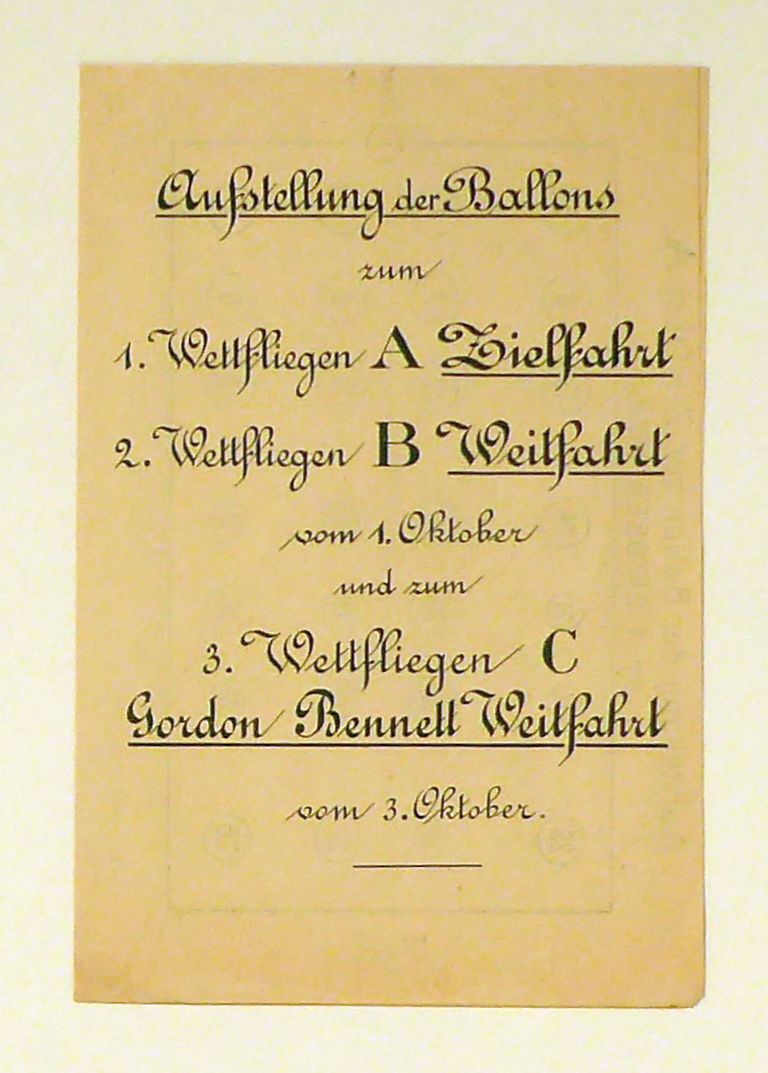 Aufstellung der Ballons
zum
1. Wettfliegen A Zielfahrt
2. Wettfliegen B Weitfahrt
vom 1. Oktober
und zum
3. Wettfliegen C
Gordon Bennett Weitfahrt
vom 3. Oktober.